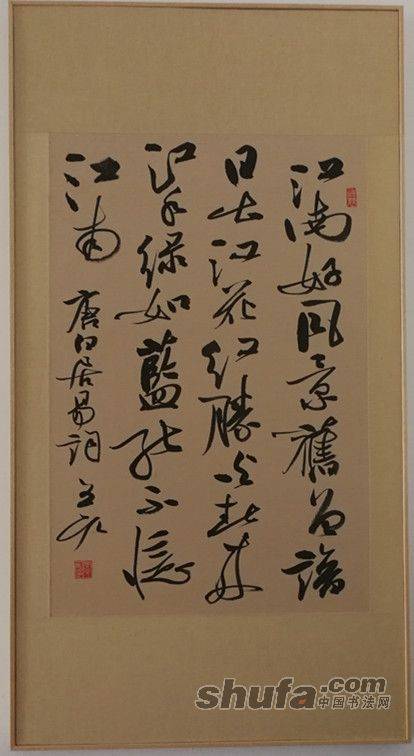 江南好风景舊曾諳
日出江花红勝火春來
江水绿如藍能不憶
江南 唐白居易词
shufa.com
中国书法网